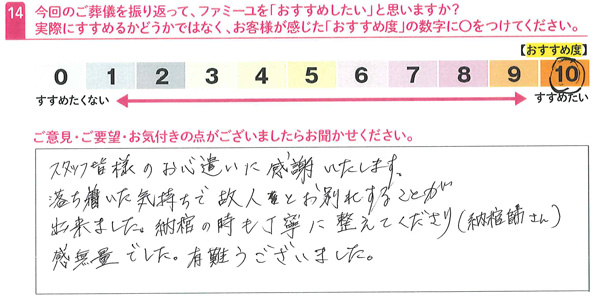 14 今回のご葬儀を振り返って、ファミーユを「おすすめしたい」と思いますか?
実際にすすめるかどうかではなく、お客様が感じた「おすすめ度」の数字に〇をつけてください。
【おすすめ度】
0 1 2 3 4 5 6 7 8 9 10
すすめたくない すすめたい
ご意見・ご要望・お気付きの点がございましたらお聞かせください。
スタッフ皆様のお心遣いに感謝いたします。
落ち着いた気持ちで故人とお別れすることが
出来ました。納棺の時も丁寧に整えてくださり(納棺師さん)
感無量でした。有難うございました。